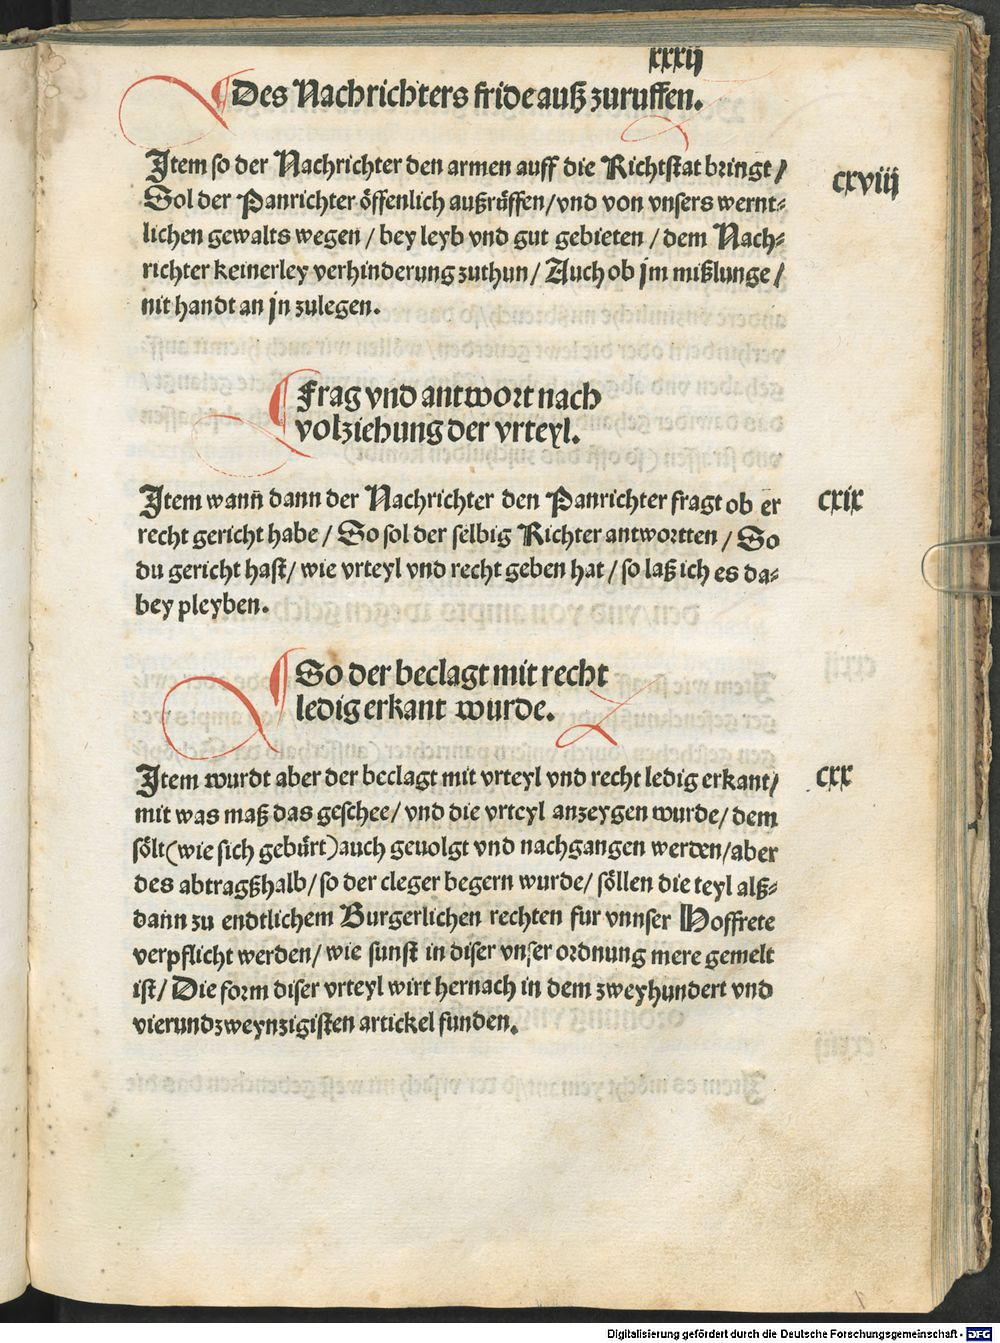 xxxij
Des Nachrichters fride auß zuruffen.
Item so der Nachrichter den armen auff die Richtstat bringt /
cxviij
Sol der Panrichter öffenlich außrüffen/vnd von vnsers wernt⸗
lichen gewalts wegen / bey leyb vnd gut gebieten / dem Nach⸗
richter keinerley verhinderung zuthun / Auch ob jm mißlunge /
nit handt an jn zulegen.
Frag vnd antwort nach
volziehung der vrteyl.
Item wann̄ dann der Nachrichter den Panrichter fragt ob er
cxix
recht gericht habe / So sol der selbig Richter antwortten / So
du gericht hast/ wie vrteyl vnd recht geben hat / so laß ich es da⸗
bey pleyben.
So der beclagt mit recht
ledig erkant wurde.
Item wurdt aber der beclagt mit vrteyl vnd recht ledig erkant/
cxx
mit was maß das geschee/ vnd die vrteyl anzeygen wurde/ dem
sölt (wie sich gebürt) auch geuolgt vnd nachgangen werden/aber
des abtragßhalb/ so der cleger begern wurde/ söllen die teyl alß⸗
dann zu endtlichem Burgerlichen rechten fur vnnser Hoffrete
verpflicht werden/ wie sunst in diser vnser ordnung mere gemelt
ist/ Die form diser vrteyl wirt hernach in dem zweyhundert vnd
vierundzweynzigisten artickel funden.
Digitalisierung gefördert durch die Deutsche Forschungsgemeinschaft - DFG